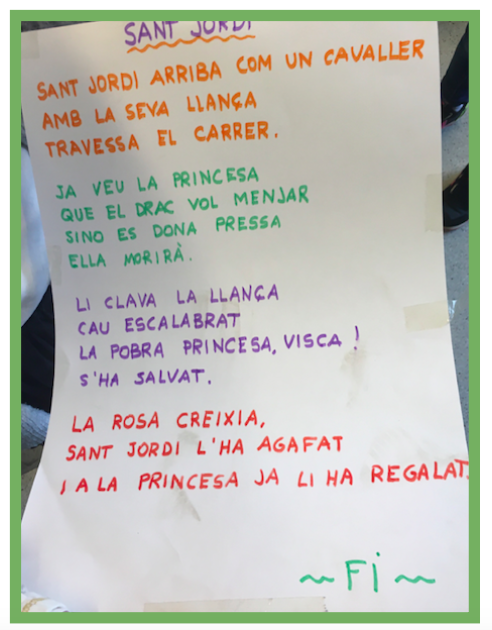 SANT JORDI
SANT JORDI ARRIBA COM UN CAVALLER
AMB LA SEVA LLANÇA
TRAVESSA EL CARRER.
JA VEU LA PRINCESA
QUE EL DRAC VOL MENJAR
SINO ES DONA PRESSA
ELLA MORIRÀ.
LI CLAVA LA LLANÇA
CAU ESCALABRAT
LA POBRA PRINCESA, VISCA!
S'HA SALVAT.
LA ROSA CREIXIA,
SANT JORDI L'HA AGAFAT
I A LA PRINCESA JA LI HA REGALAT.
~ Fi ~